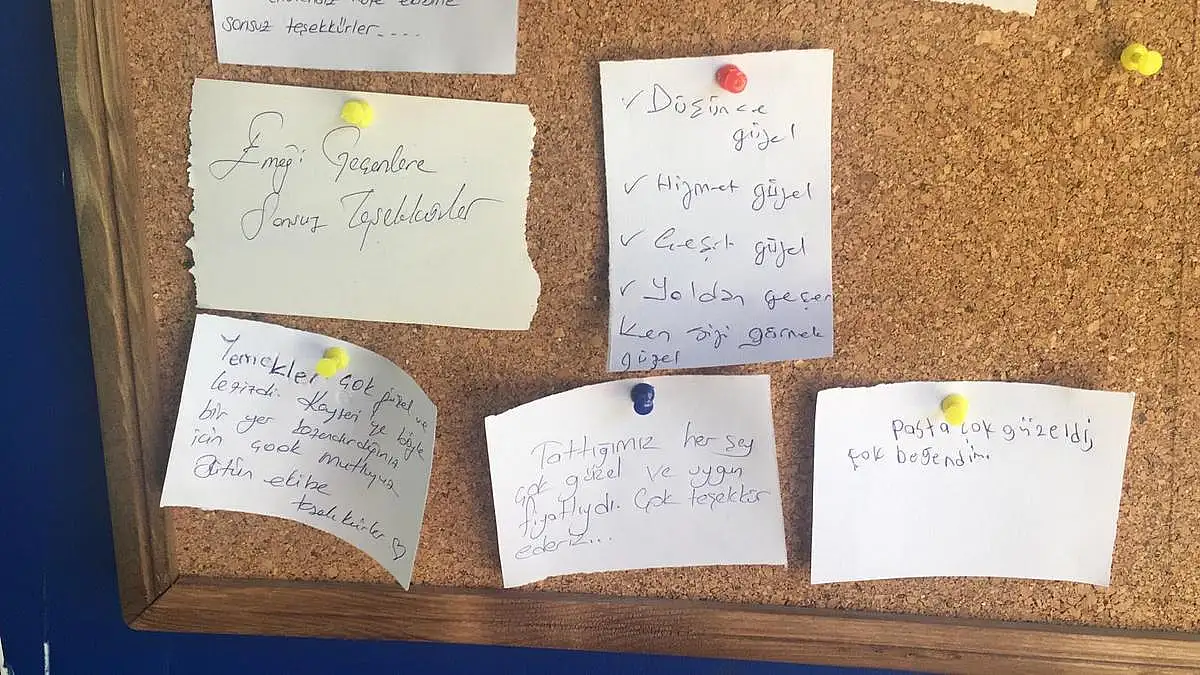 ekibine
sonsuz teşekkürler....
Emeği Geçenlere
Sonsuz Teşekkürler
✓ Düşünce
güzel
✓ Hizmet güzel
✓ Çeşit güzel
✓ Yoldan geçer
ken sizi görmek
güzel
Yemekler çok güzel ve
lezizdi. Kayseri'ye böyle
bir yer kazandırdığınız
için çook mutluyuz
Bütün ekibe
teşekkürler ♡
Tattığımız her şey
çok güzel ve uygun
fiyatlıydı. Çok teşekkür
ederiz...
Pasta çok güzeldi,
çok beğendim.